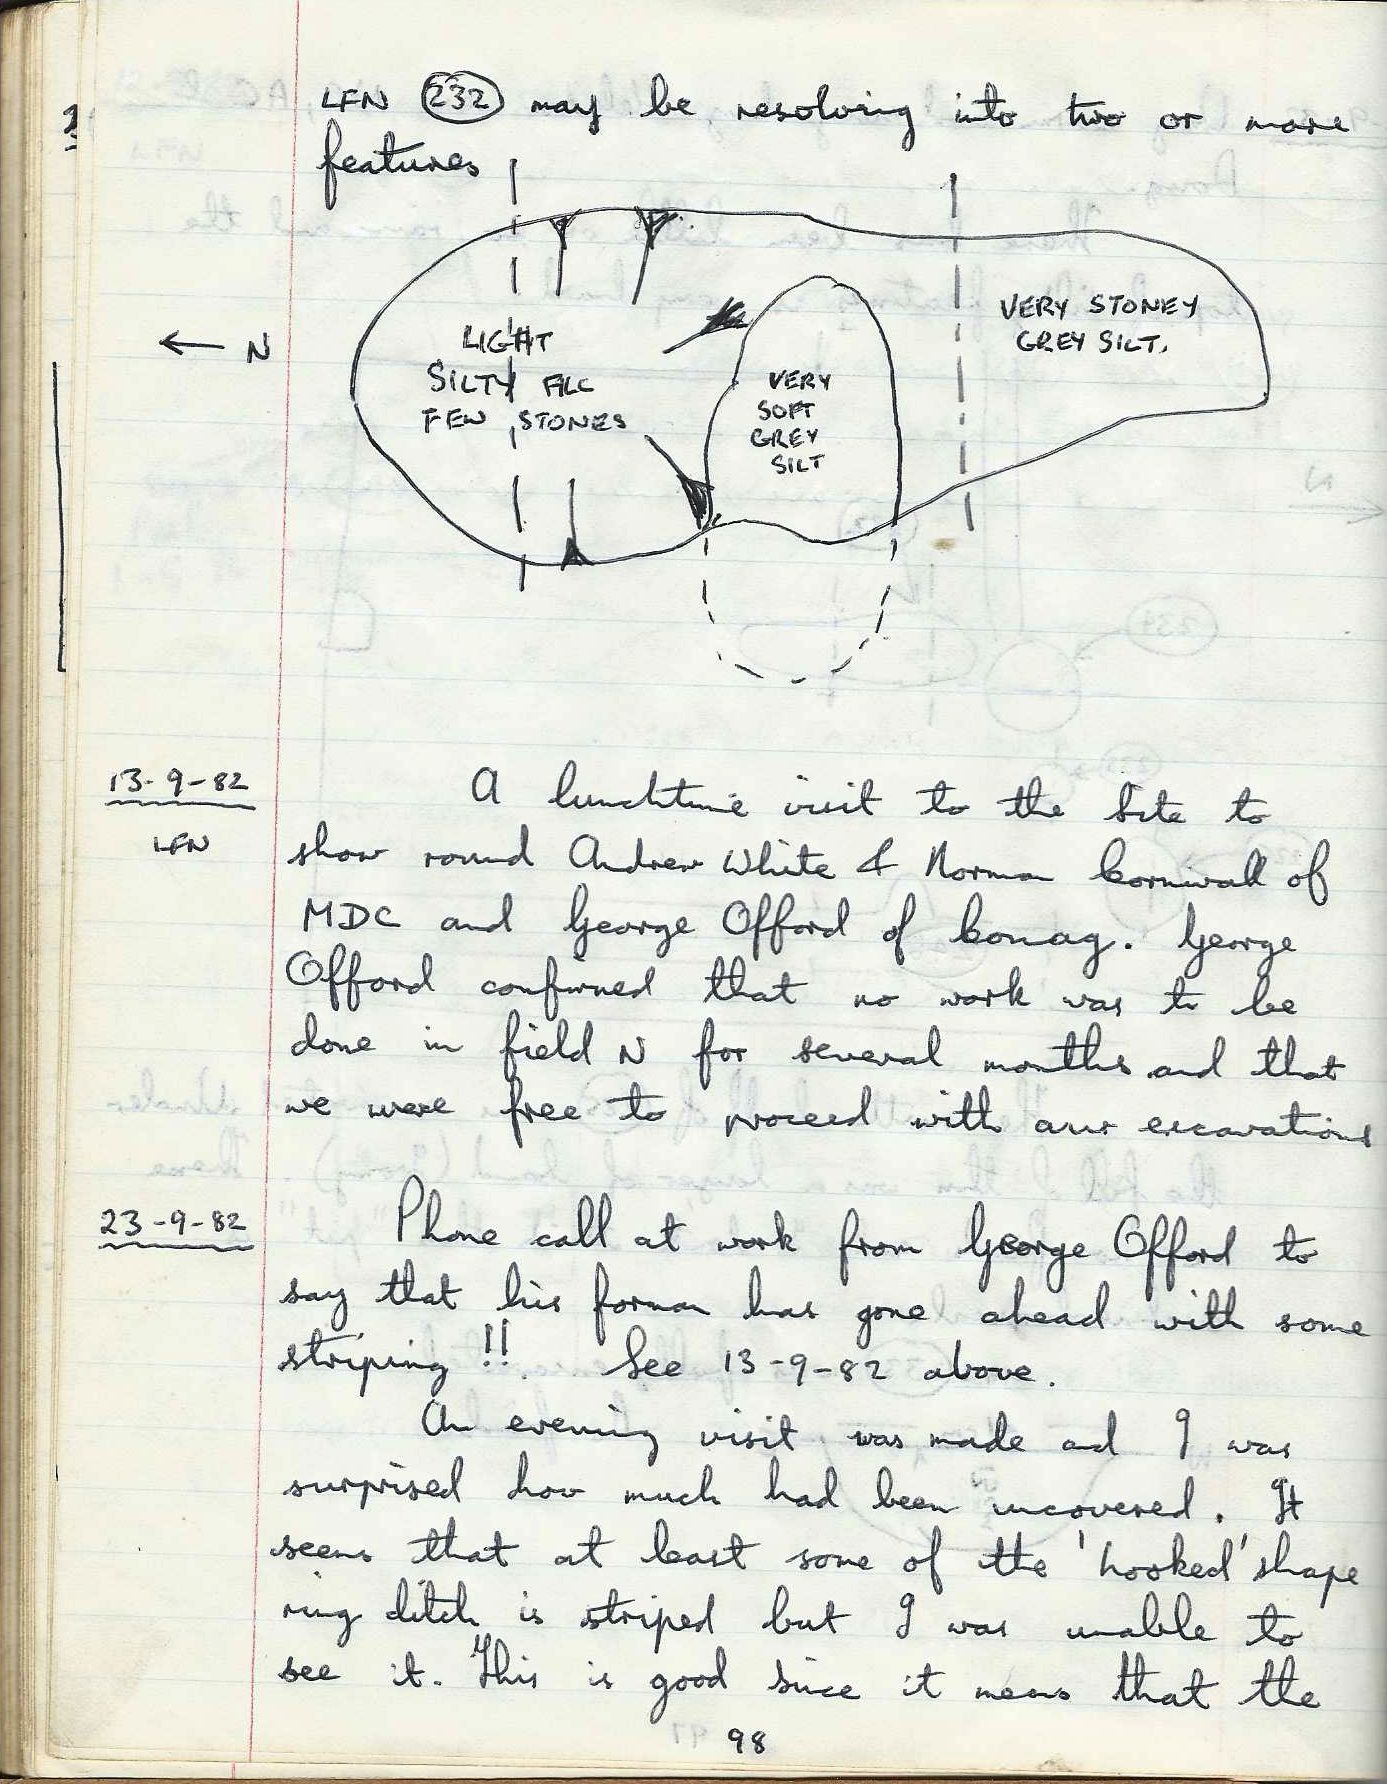 LFN 232 may be resolving into two or more
features
← N
LIGHT
SILTY FILL
FEW STONES
VERY
SOFT
GREY
SILT
VERY STONEY
GREY SILT.
13-9-82
LFN
A lunchtime visit to the Site to
show round Andrew White & Norman Cornwall of
MDC and George Offord of Comag. George
Offord confirmed that no work was to be
done in field N for several months and that
we were free to proceed with our excavations
23-9-82
Phone call at work from George Offord to
say that his forman has gone ahead with some
striping !! See 13-9-82 above.
An evening visit was made and I was
surprised how much had been uncovered. It
seems that at least some of the 'hooked' shape
ring ditch is striped but I was unable to
see it. This is good since it means that the
98